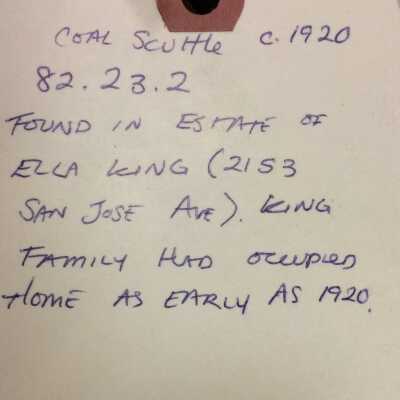 COAL SCUTTLE c. 1920
82.23.2
FOUND IN ESTATE OF
ELLA KING (2153
SAN JOSE AVE). KING
FAMILY HAD OCCUPIED
HOME AS EARLY AS 1920.